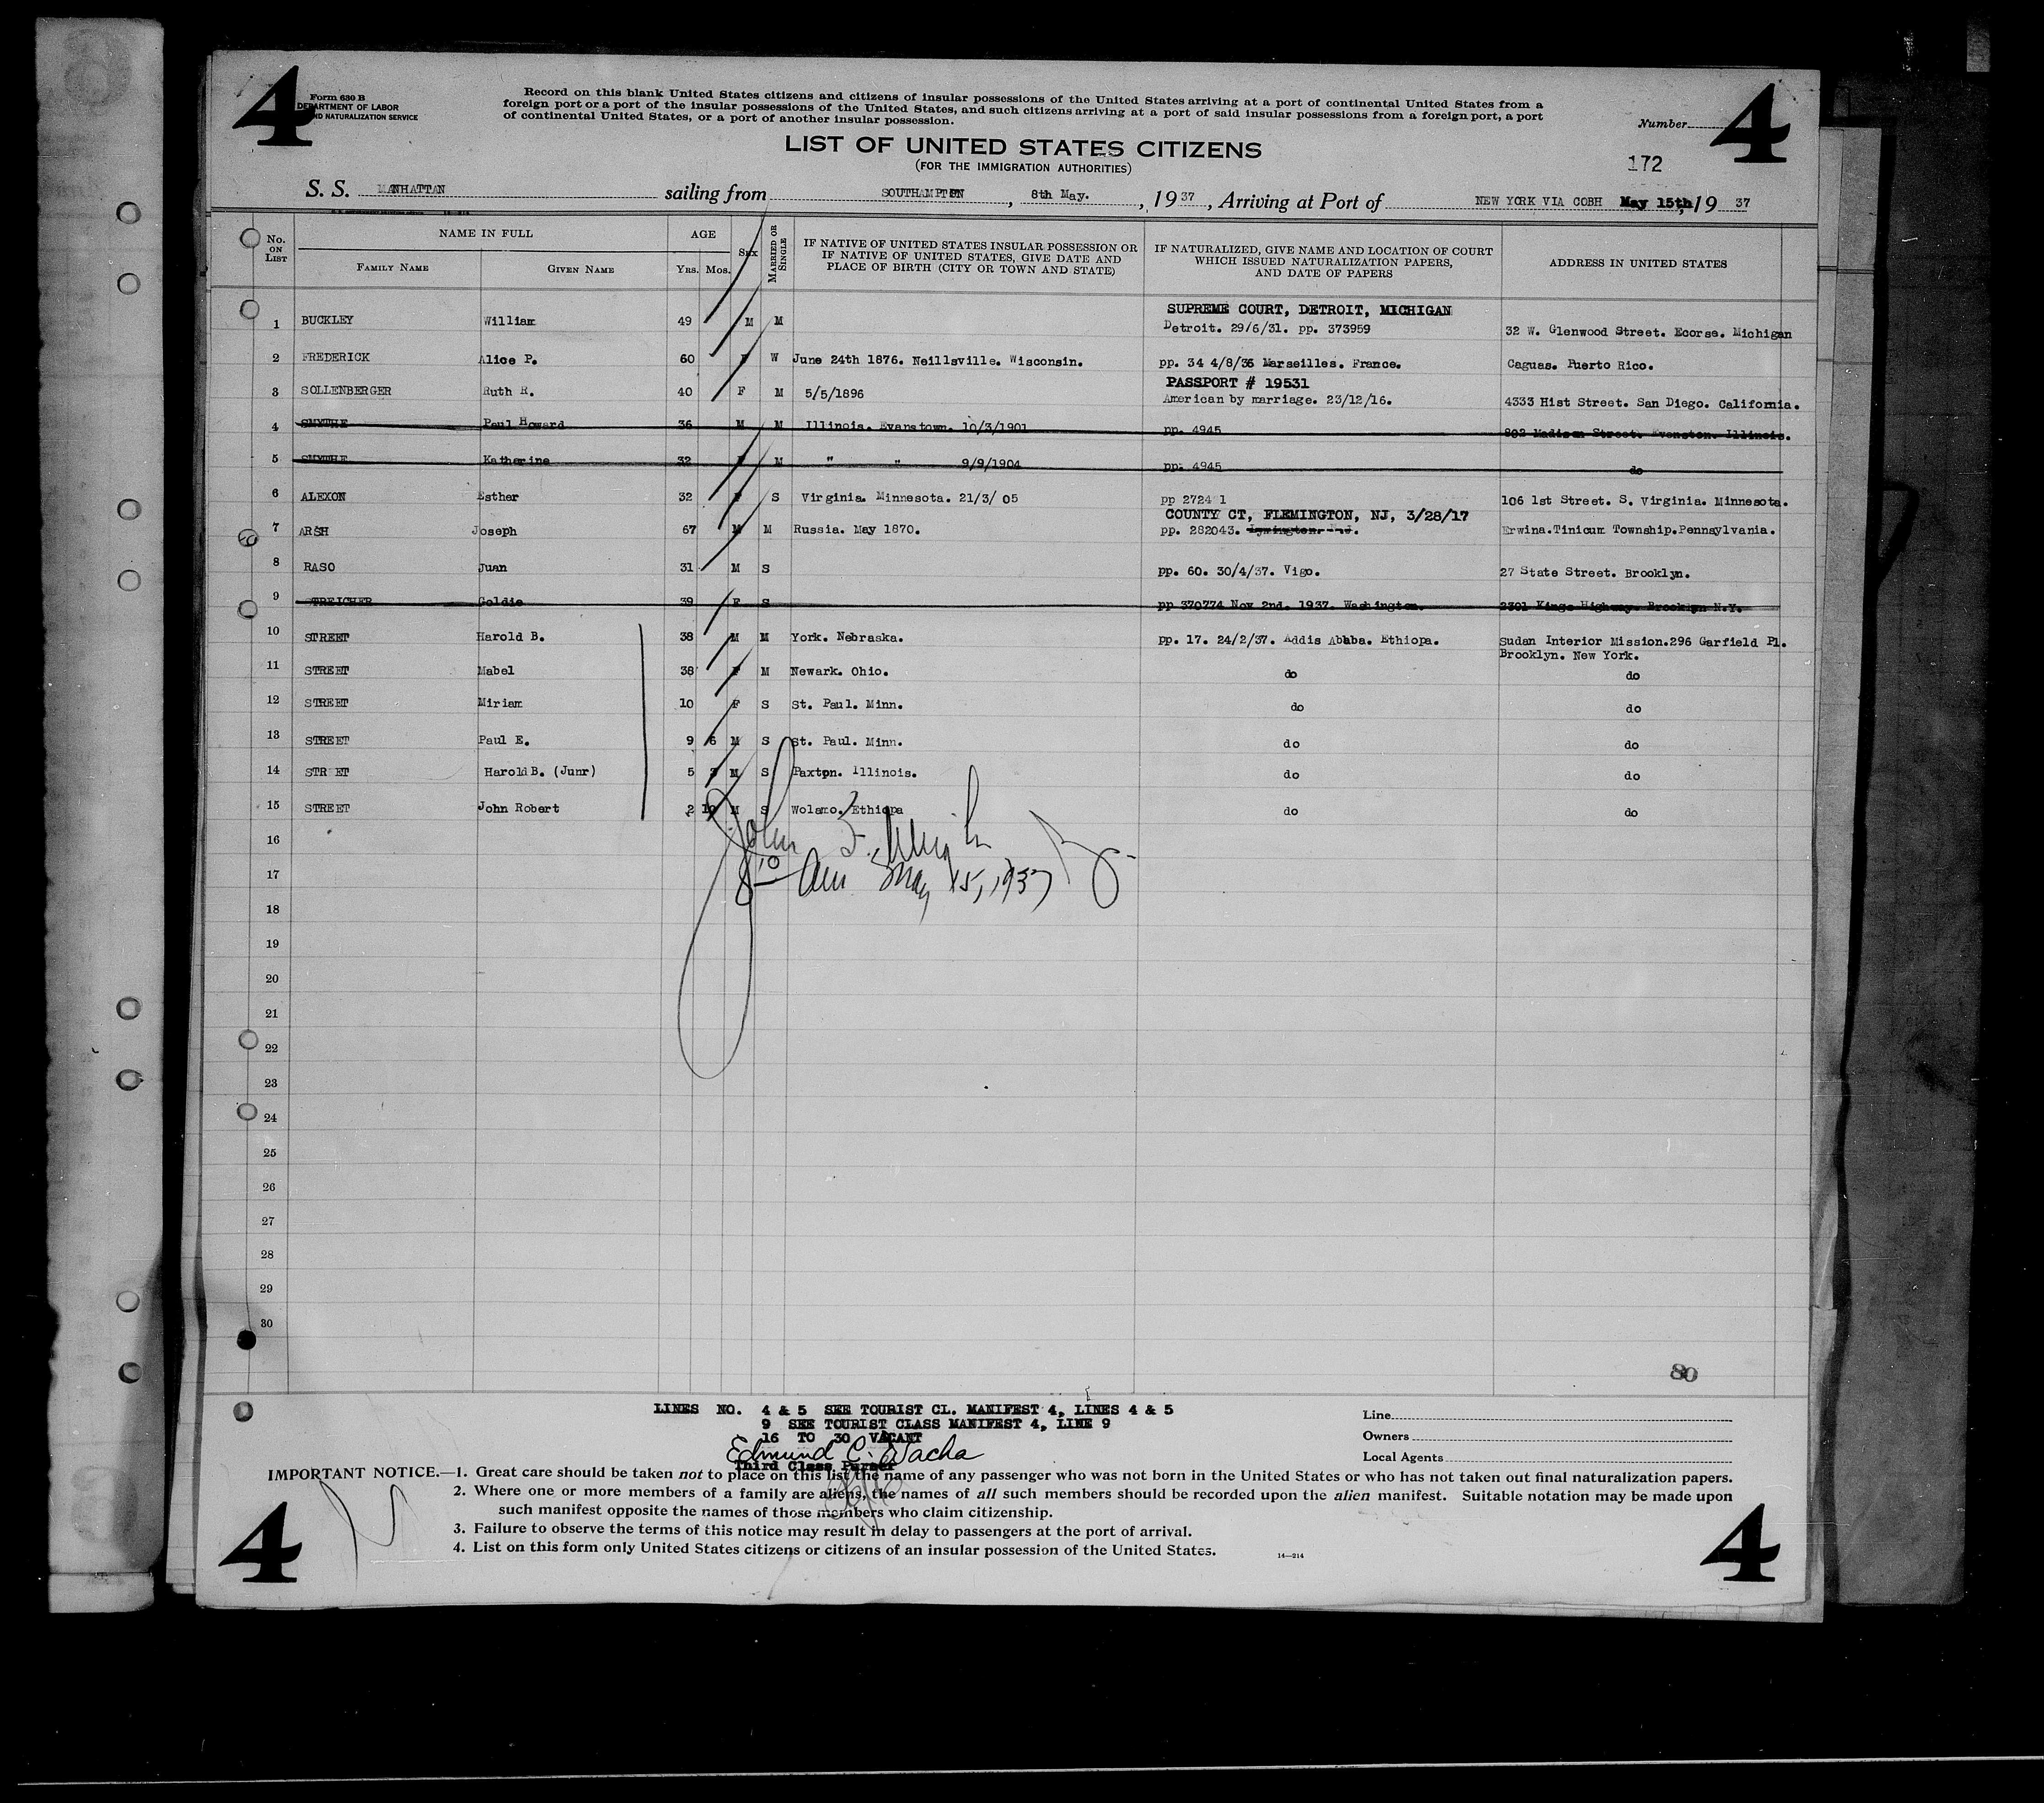 4
4
Form 630 B
DEPARTMENT OF LABOR
ND NATURALIZATION SERVICE
Record on this blank United States citizens and citizens of insular possessions of the United States arriving at a port of continental United States from a
foreign port or a port of the insular possessions of the United States, and such citizens arriving at a port of said insular possessions from a foreign port, a port
of continental United States, or a port of another insular possession.
Number
LIST OF UNITED STATES CITIZENS
(FOR THE IMMIGRATION AUTHORITIES)
172
S. S. MANHATTAN sailing from SOUTHAMPTON, 8th May., 1937, Arriving at Port of NEW YORK VIA COBH May 15th, 1937
No. ON LIST NAME IN FULL AGE SEX MARRIED OR SINGLE IF NATIVE OF UNITED STATES INSULAR POSSESSION OR IF NATIVE OF UNITED STATES, GIVE DATE AND PLACE OF BIRTH (CITY OR TOWN AND STATE) IF NATURALIZED, GIVE NAME AND LOCATION OF COURT WHICH ISSUED NATURALIZATION PAPERS, AND DATE OF PAPERS ADDRESS IN UNITED STATES
FAMILY NAME GIVEN NAME YRS. MOS.
SUPREME COURT, DETROIT, MICHIGAN
1 BUCKLEY William 49 M M Detroit. 29/6/31. pp. 373959 32 W. Glenwood Street. Ecorse. Michigan
2 FREDERICK Alice P. 60 F W June 24th 1876. Neillsville. Wisconsin. pp. 34 4/8/36 Marseilles. France. Caguas. Puerto Rico.
PASSPORT # 19531
3 SOLLENBERGER Ruth R. 40 F M 5/5/1896 American by marriage. 23/12/16. 4333 Hist Street. San Diego. California.
4 SMYTHE Paul Howard 36 M M Illinois. Evanstown. 10/3/1901 pp. 4945 802 Madison Street. Evanston. Illinois.
5 SMYTHE Katherine 32 F M " " 9/9/1904 pp. 4945 do
6 ALEXON Esther 32 F S Virginia. Minnesota. 21/3/ 05 pp 2724 1 106 1st Street. S. Virginia. Minnesota.
COUNTY CT, FLEMINGTON, NJ, 3/28/17
7 ARSH Joseph 67 M M Russia. May 1870. pp. 282043. Erwina.Tinicum Township.Pennsylvania.
8 RASO Juan 31 M S pp. 60. 30/4/37. Vigo. 27 State Street. Brooklyn.
9 STREICHER Goldie 39 F S pp 370774 Nov 2nd. 1937. Washington. 2301 Kings Highway. Brooklyn N.Y.
10 STREET Harold B. 38 M M York. Nebraska. pp. 17. 24/2/37. Addis Ababa. Ethiopa. Sudan Interior Mission.296 Garfield Pl.
Brooklyn. New York.
11 STREET Mabel 38 F M Newark. Ohio. do do
12 STREET Miriam 10 F S St. Paul. Minn. do do
13 STREET Paul E. 9 6 M S St. Paul. Minn. do do
14 STR ET Harold B. (Junr) 5 3 M S Paxton. Illinois. do do
15 STREET John Robert 2 10 M S Wolamo. Ethiopa do do
16
John
17
May 15, 1937
18
19
20
21
22
23
24
25
26
27
28
29
30
80
LINES NO. 4 & 5 SEE TOURIST CL. MANIFEST 4, LINES 4 & 5
9 SEE TOURIST CLASS MANIFEST 4, LINE 9
16 TO 30 VACANT
Edmund C. Wacha
Third Class Purser
Line
Owners
Local Agents
IMPORTANT NOTICE.—1. Great care should be taken not to place on this list the name of any passenger who was not born in the United States or who has not taken out final naturalization papers.
2. Where one or more members of a family are aliens, the names of all such members should be recorded upon the alien manifest. Suitable notation may be made upon
such manifest opposite the names of those members who claim citizenship.
3. Failure to observe the terms of this notice may result in delay to passengers at the port of arrival.
4. List on this form only United States citizens or citizens of an insular possession of the United States.
14—214
4
4